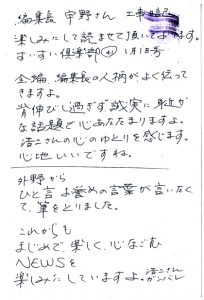 編集長 宇野さん 工事日記
楽しみにして読ませて頂いてます。
すいすい倶楽部 41 1月1日号
全編、編集長の人柄がよく伝って
きますよ。
背伸びし過ぎず誠実に身近か
な話題で心あたたまりますよ。
浩二さんの心のゆとりを感じます。
心地いいですね。
外野から
ひと言 よ誉めの言葉が言いたく
て、筆をとりました。
これからも
まじめで、楽しく、心なごむ
NEWSを
楽しみにしていますよ。浩二さん
ガンバレ